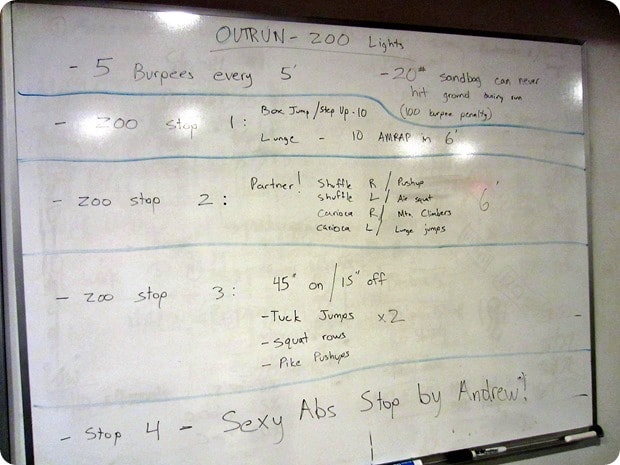 OUTRUN - ZOO Lights
- 5 Burpees every 5'
- 20# sandbag can never
hit ground during run
(100 burpee penalty)
- ZOO stop 1: Box Jump/Step Up - 10
Lunge - 10 AMRAP in 6'
- ZOO stop 2: Partner! Shuffle R / Pushup
Shuffle L / Air squat
Carioca R / Mtn. Climbers
Carioca L / Lunge jumps
6'
- ZOO stop 3: 45" on / 15" off
- Tuck Jumps x2
- squat rows
- Pike Pushups
- Stop 4 - Sexy Abs Stop by Andrew"!